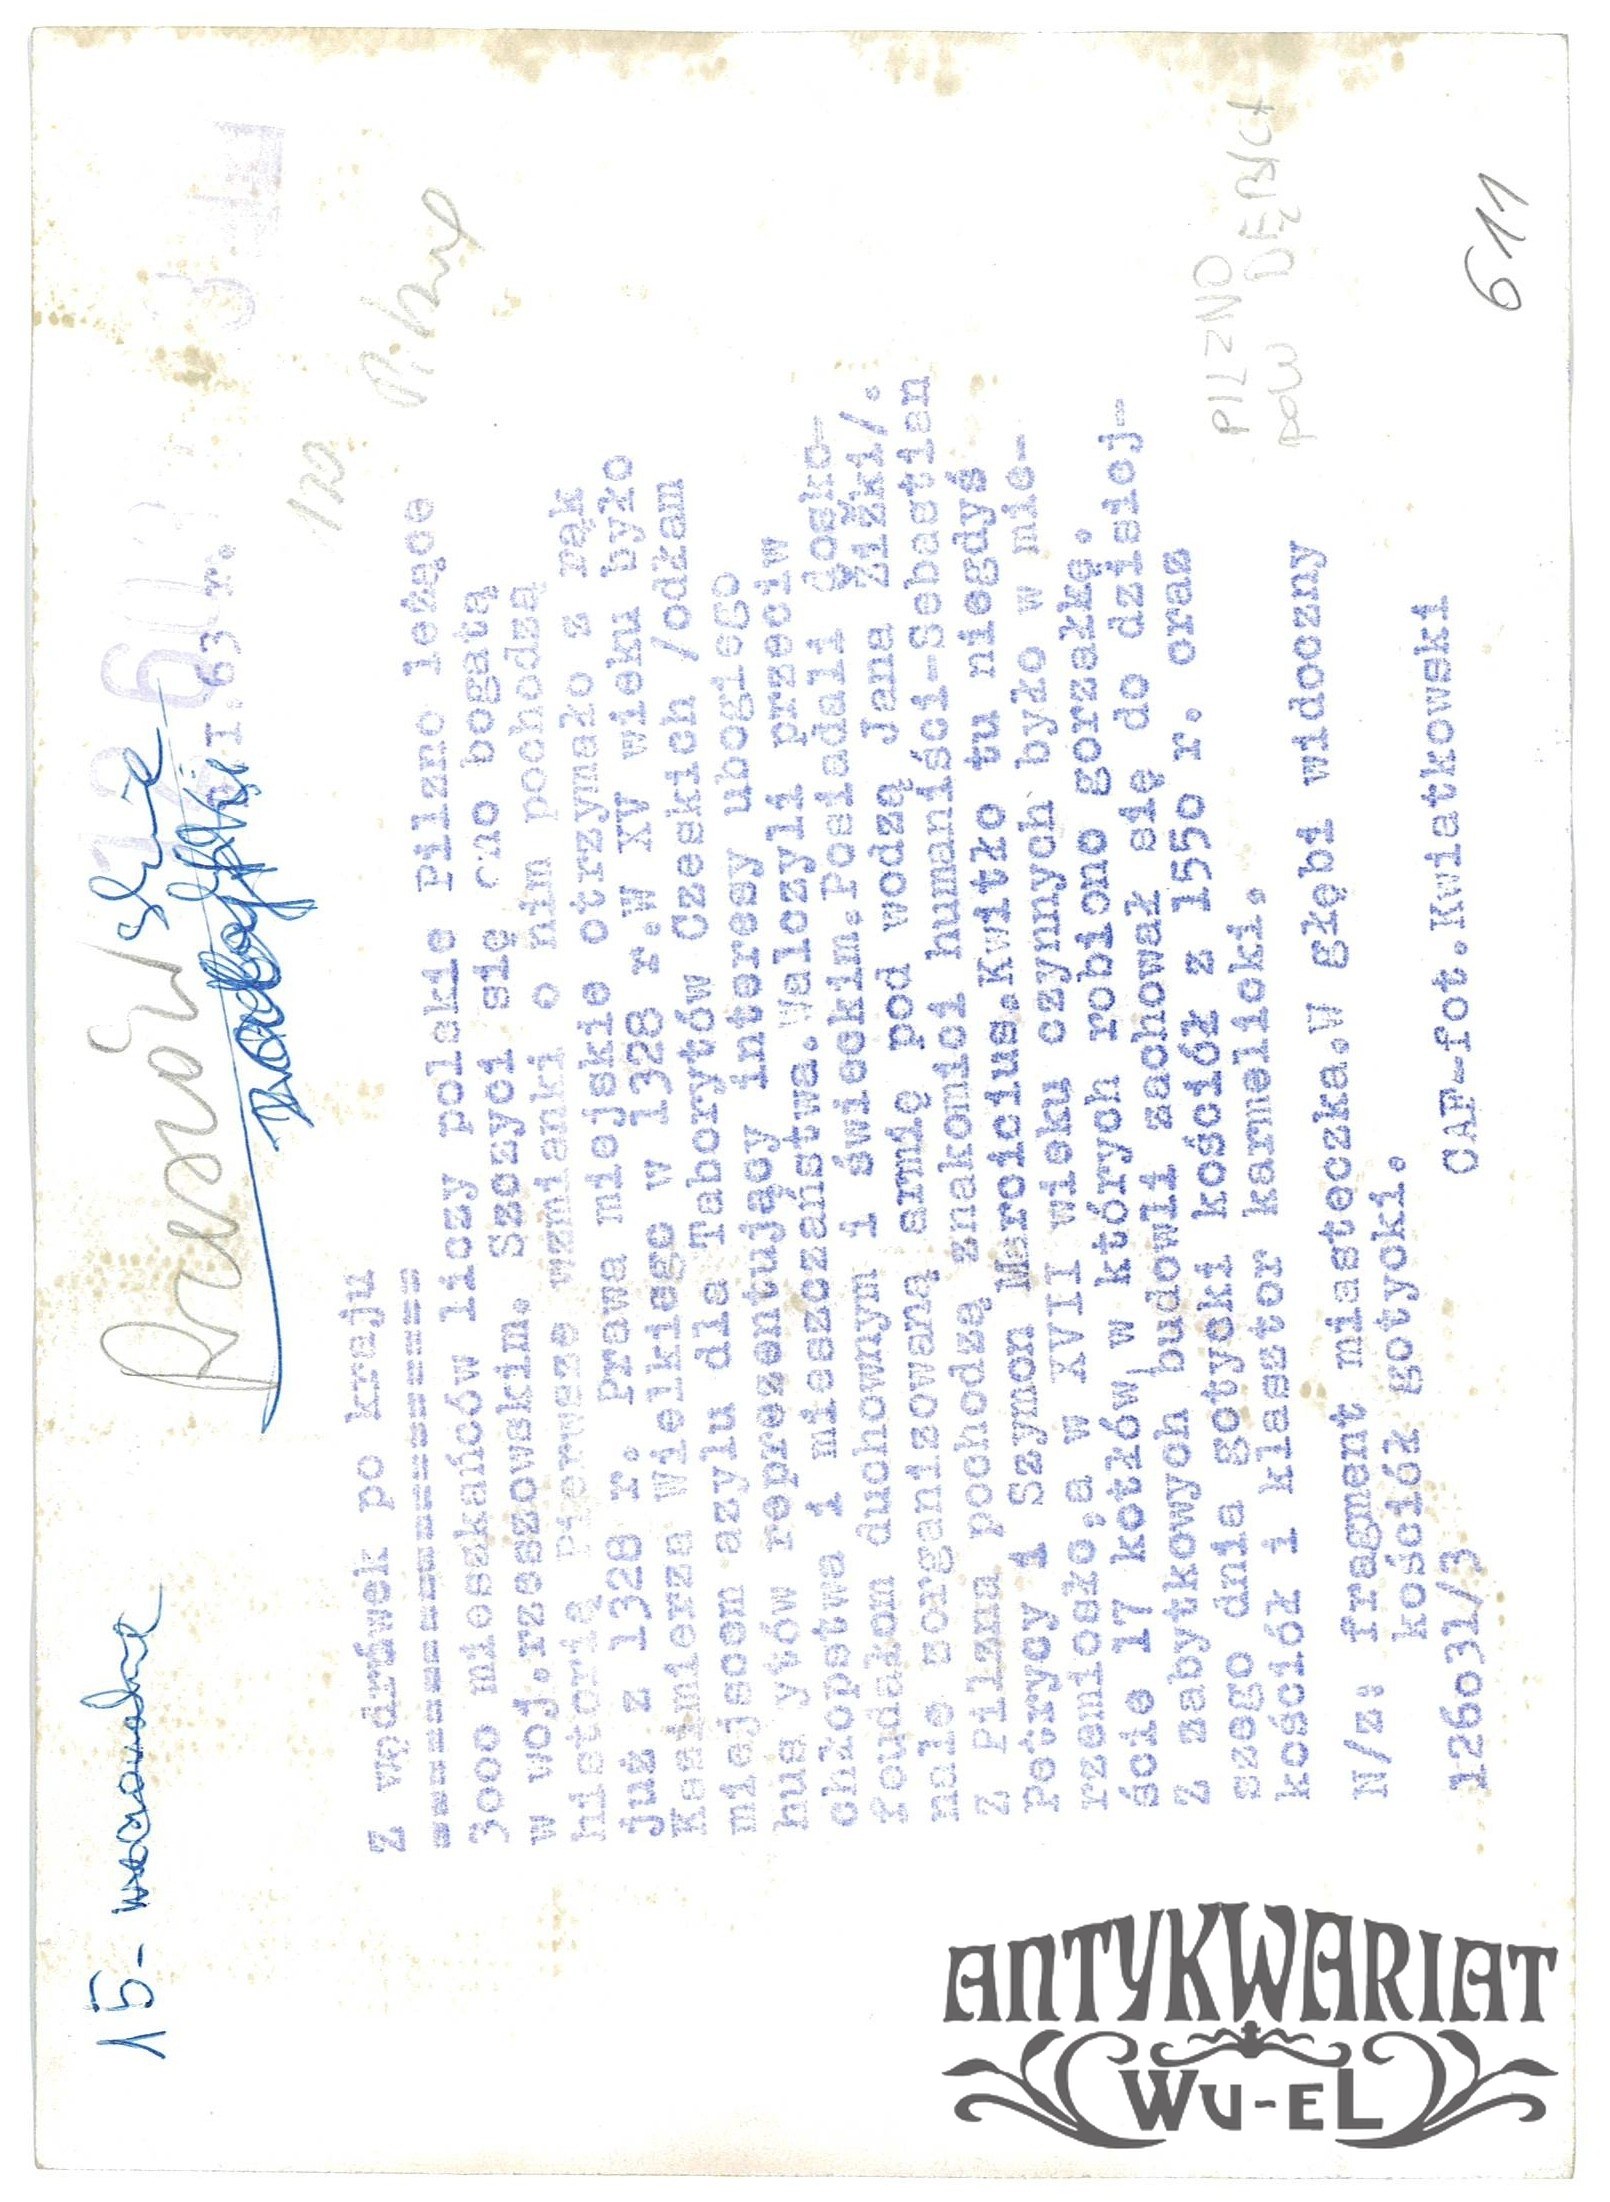 15-
Rzeszów
I.63 r.
120
Z wędrówek po kraju
=====================
3ooo mieszkańców liczy polskie Pilzno leżące
w woj.rzeszowskim. Szczyci się ono bogatą
historią pierwsze wzmianki o nim pochodzą
już z 1328 r. Prawa miejskie otrzymało z rąk
Kazimierza Wielkiego w 1328 r.W XV wieku było
miejscem azylu dla Taborytów Czeskich /odłam
husytów reprezentujący interesy ubogiego
chłopstwa i mieszczaństwa.Walczyli przeciw
feudałom duchownym i świeckim.Posiadali dosko-
nale zorganizowaną armię pod wodzą Jana Žižki/.
Z Pilzna pochodzą znakomici humaniści-Sebastian
Petrycy i Szymon Maroicius.Kwitło tu niegdyś
rzemiosło,a w XVII wieku czynnych było w mie-
ście 17 kotłów w których robiono gorzałkę.
Z zabytkowych budowli zachował się do dzisiej-
szego dnia gotycki kościół z 155o r. oraz
kościół i klasztor karmelicki.
N/z: fragment miasteczka.W głębi widoczny
kościół gotycki.
126o31/3 CAF-fot.Kwiatkowski
PILZNO
pow DĘBICA
611
ANTYKWARIAT
WU-EL